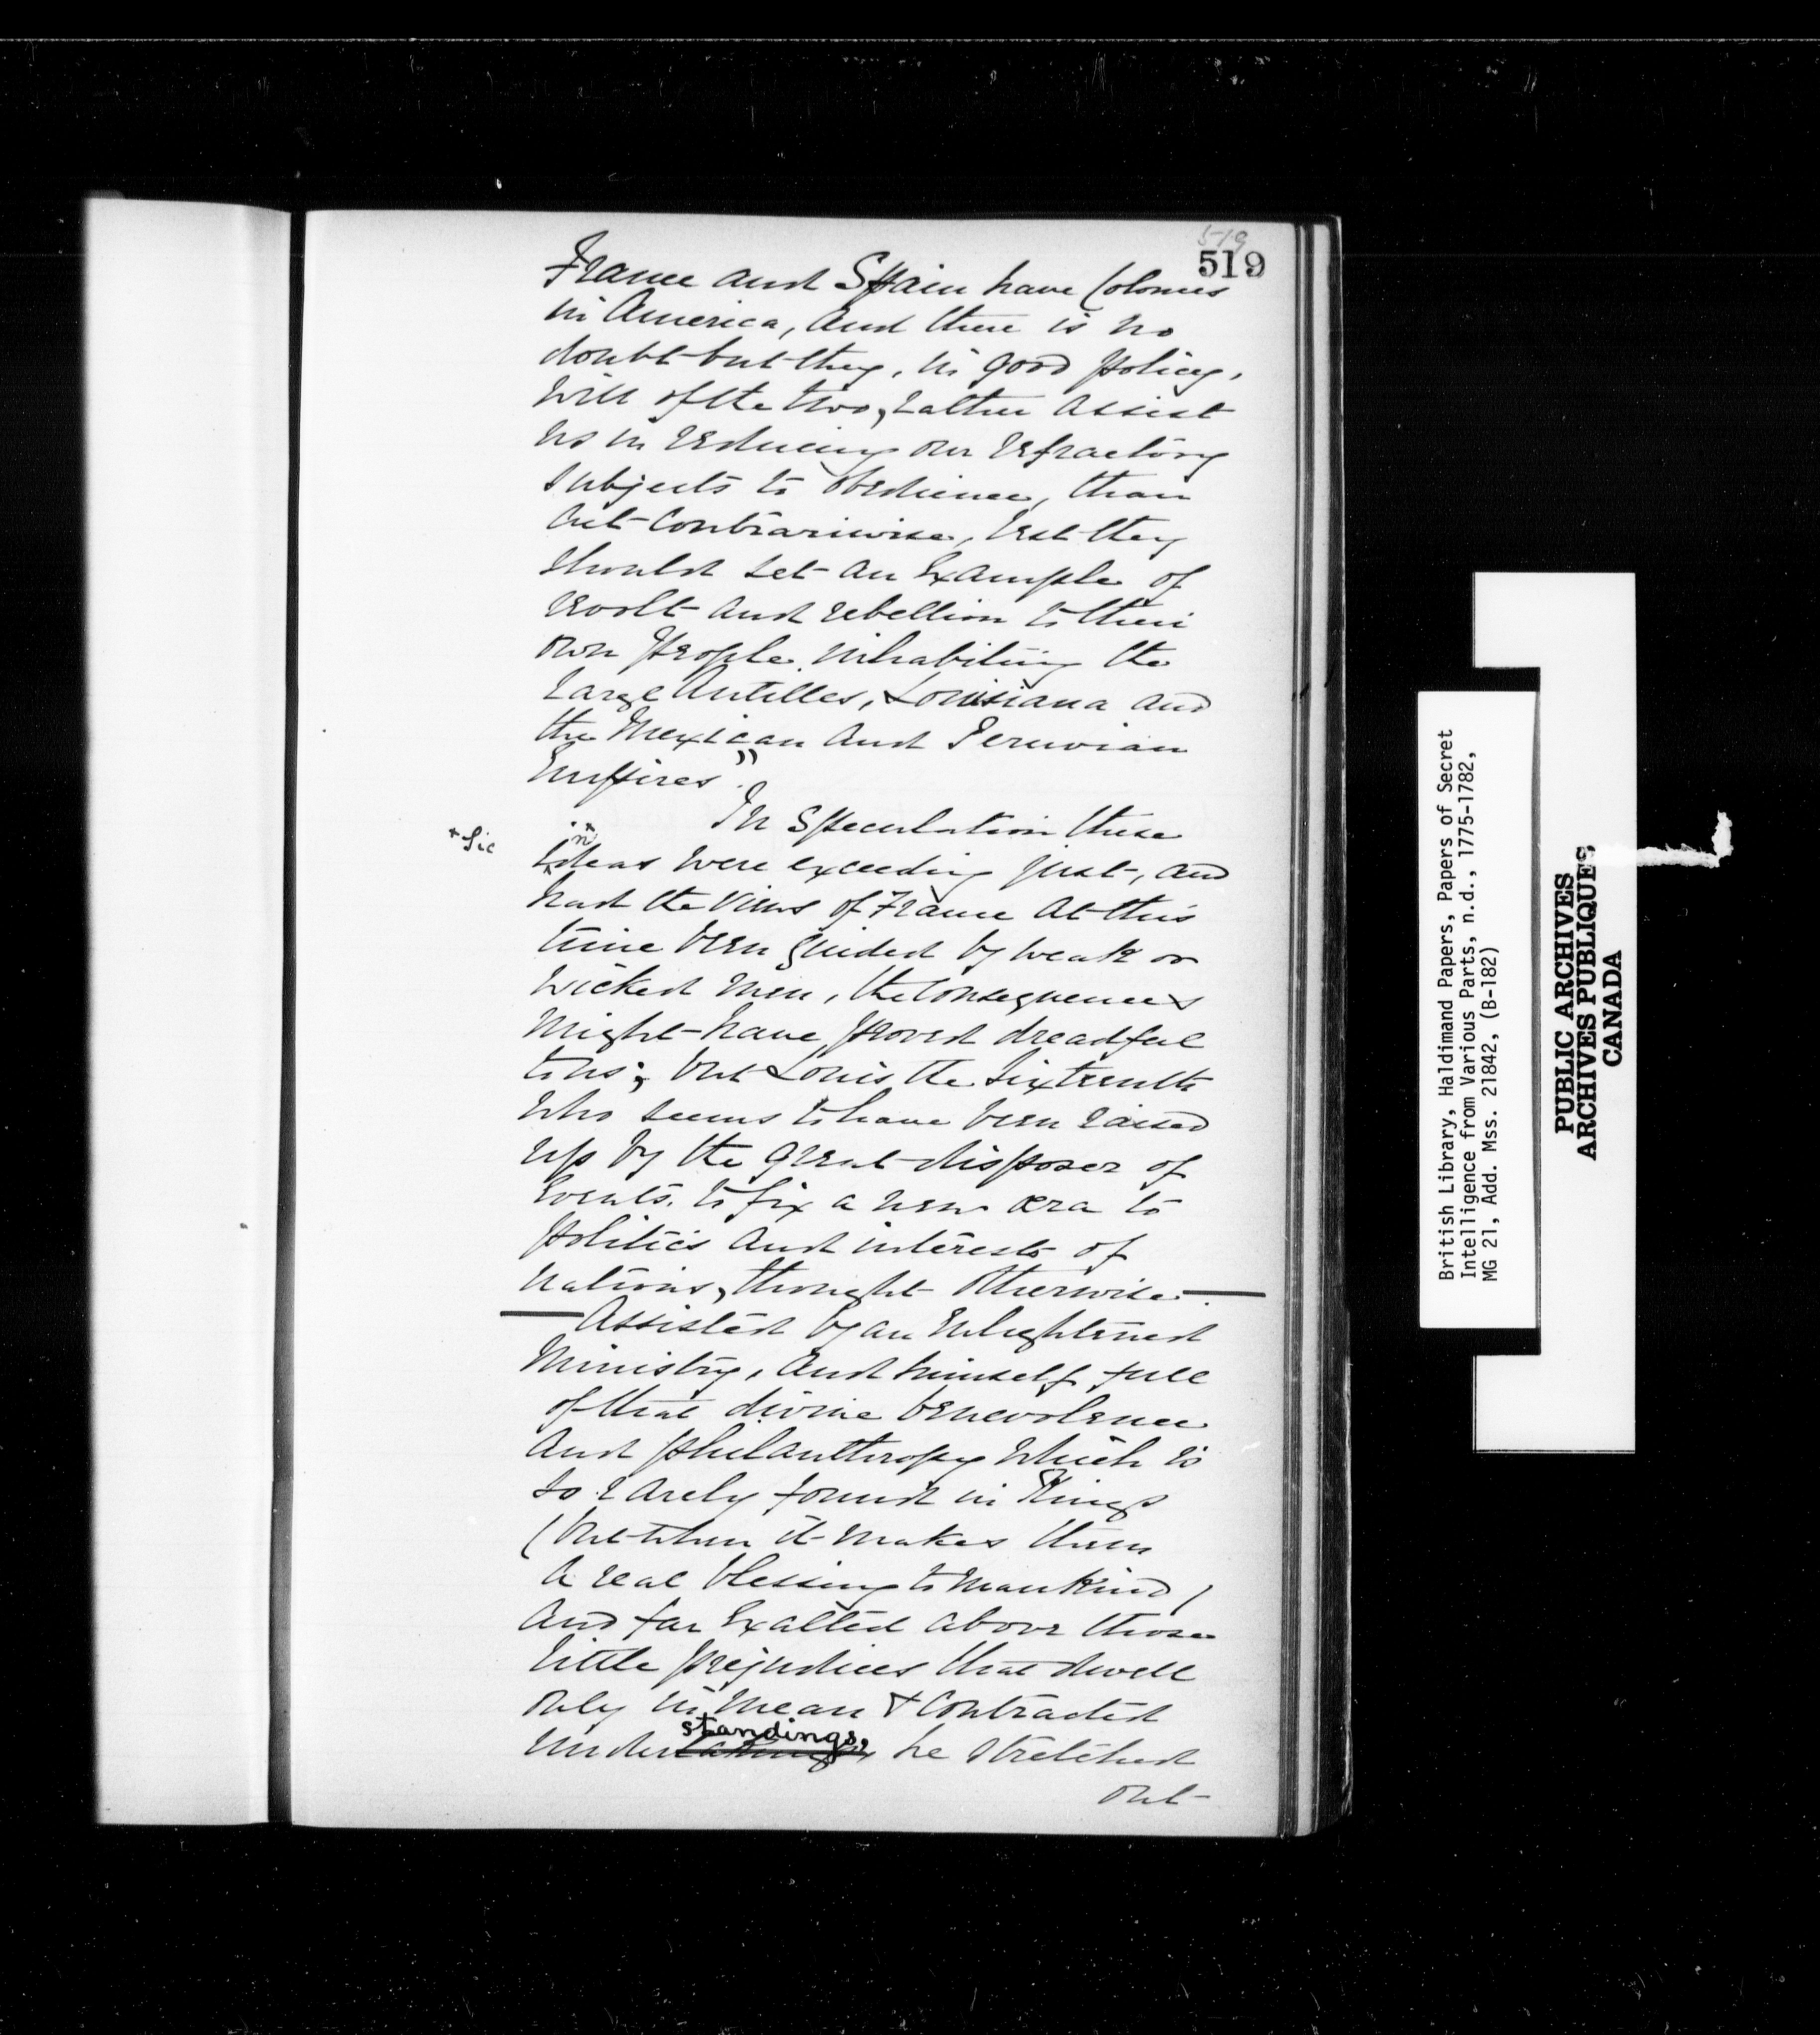 519
519
France and Spain have Colonies
in America, and there is no
doubt but they, in good policy,
will of the two, rather assist
us in reducing our refractory
subjects to obedience, than
act contrariwise, lest they
should set an Example of
revolt and rebellion to their
own people inhabiting the
large Antilles, Louisiana and
the Mexican and Peruvian
Empires".
In Speculation these
*Sic in*
Ideas were exceeding just, and
had the views of France at this
time been guided by weak or
wicked men, the Consequences
might have proved dreadful
to us; but Louis the Sixteenth
who seems to have been raised
up by the great disposer of
Events, to fix a new æra to
politics and interests of
nations, thought otherwise.—
—Assisted by an Enlightened
Ministry, and himself full
of that divine benevolence
and philanthropy which is
so rarely found in Kings
(but when it makes them
a real blessing to mankind)
and far Exalted above those
little prejudices that dwell
only in mean & Contracted
standings,
undertakings, he stretched
out
British Library, Haldimand Papers, Papers of Secret
Intelligence from Various Parts, n.d., 1775-1782,
MG 21, Add. Mss. 21842, (B-182)
PUBLIC ARCHIVES
ARCHIVES PUBLIQUES
CANADA